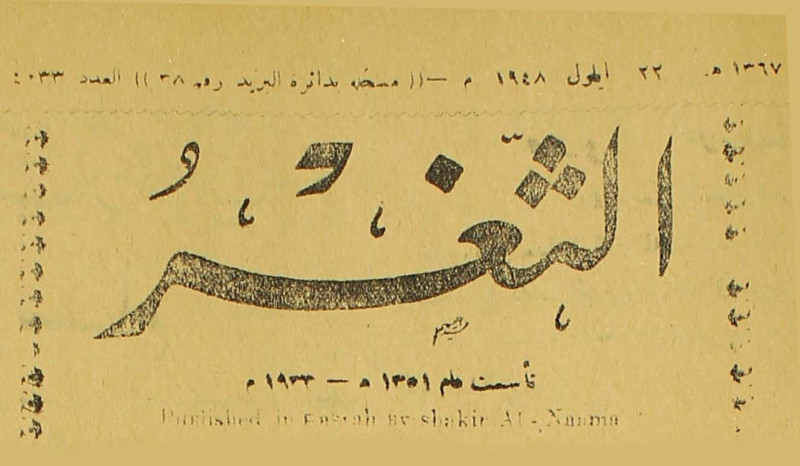 ١٣٦٧ هـ ٢٢ ايلول ١٩٤٨ م —(( مسجله بدائرة البريد رقم ٣٨ )) العدد ٤٠٣٣
الثَّغْرُ
تأسست عام ١٣٥١ هـ — ١٩٣٣ م
Published in Basrah by shakir Al-Naama